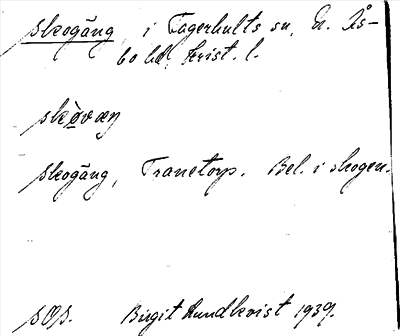 Skogäng, i Fagerhults sn, Ö. Ås-
bo hd, Krist. l.
skòvæŋ
Skogäng, Tranetorp. Bel. i skogen.
Birgit Lundkvist 1939.